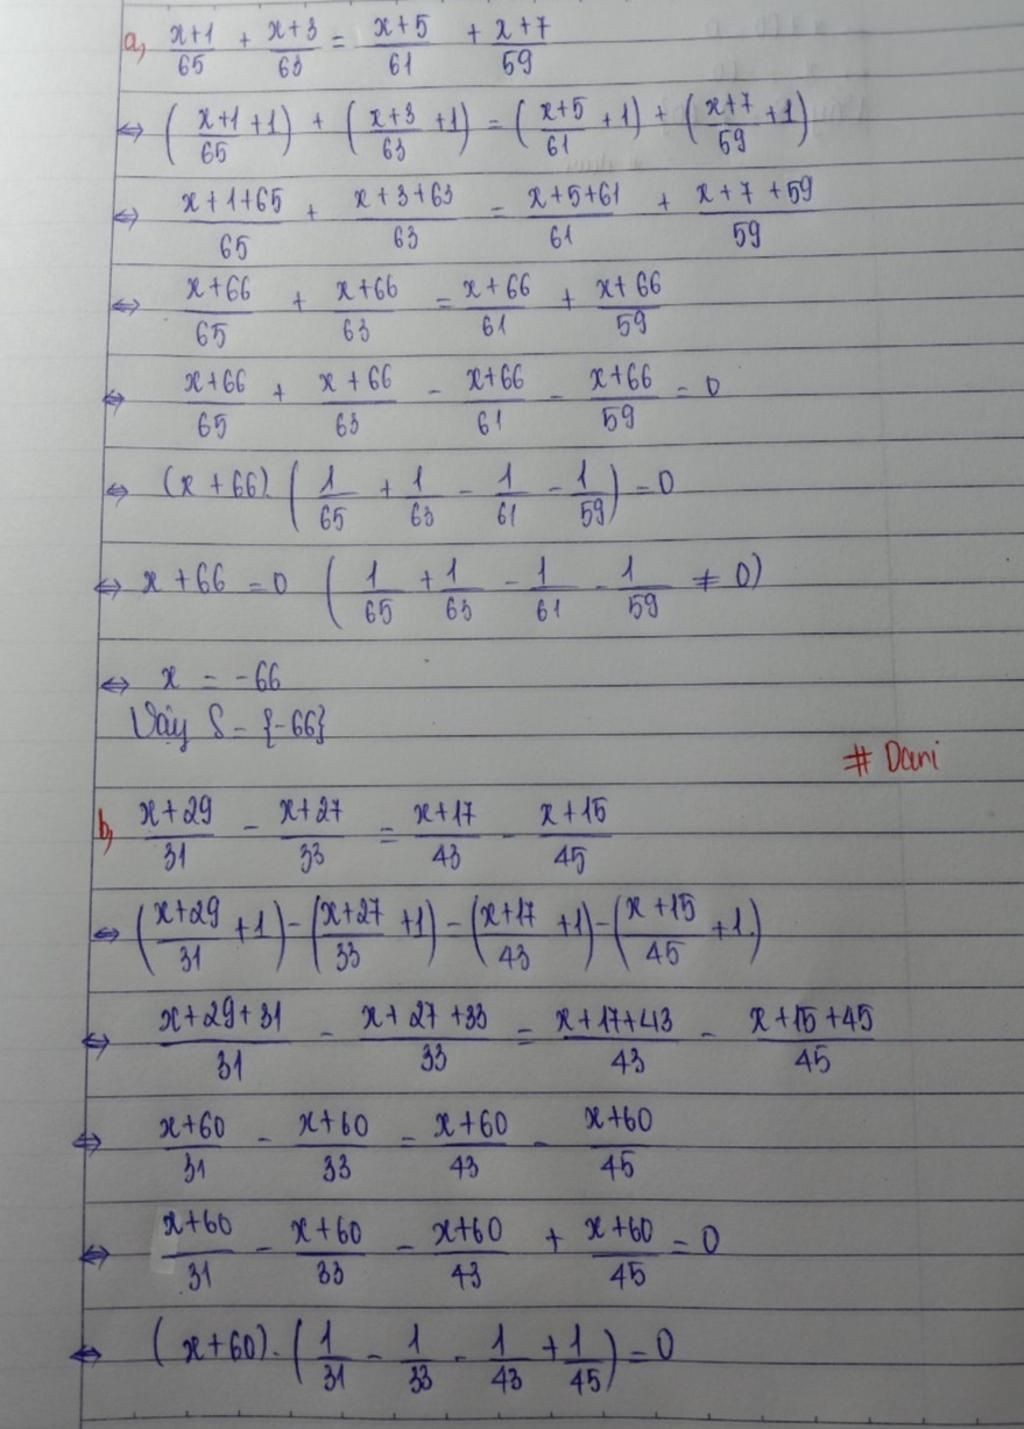 a, (x+1)/65 + (x+3)/63 = (x+5)/61 + (x+7)/59
⇔ ((x+1)/65 + 1) + ((x+3)/63 + 1) = ((x+5)/61 + 1) + ((x+7)/59 + 1)
⇔ (x+1+65)/65 + (x+3+63)/63 = (x+5+61)/61 + (x+7+59)/59
⇔ (x+66)/65 + (x+66)/63 = (x+66)/61 + (x+66)/59
⇔ (x+66)/65 + (x+66)/63 - (x+66)/61 - (x+66)/59 = 0
⇔ (x+66).(1/65 + 1/63 - 1/61 - 1/59) = 0
⇔ x+66 = 0 (1/65 + 1/63 - 1/61 - 1/59 ≠ 0)
⇔ x = -66
Vậy S = {-66}
# Dani
b, (x+29)/31 - (x+27)/33 = (x+17)/43 - (x+15)/45
⇔ ((x+29)/31 + 1) - ((x+27)/33 + 1) = ((x+17)/43 + 1) - ((x+15)/45 + 1)
⇔ (x+29+31)/31 - (x+27+33)/33 = (x+17+43)/43 - (x+15+45)/45
⇔ (x+60)/31 - (x+60)/33 = (x+60)/43 - (x+60)/45
⇔ (x+60)/31 - (x+60)/33 - (x+60)/43 + (x+60)/45 = 0
⇔ (x+60).(1/31 - 1/33 - 1/43 + 1/45) = 0